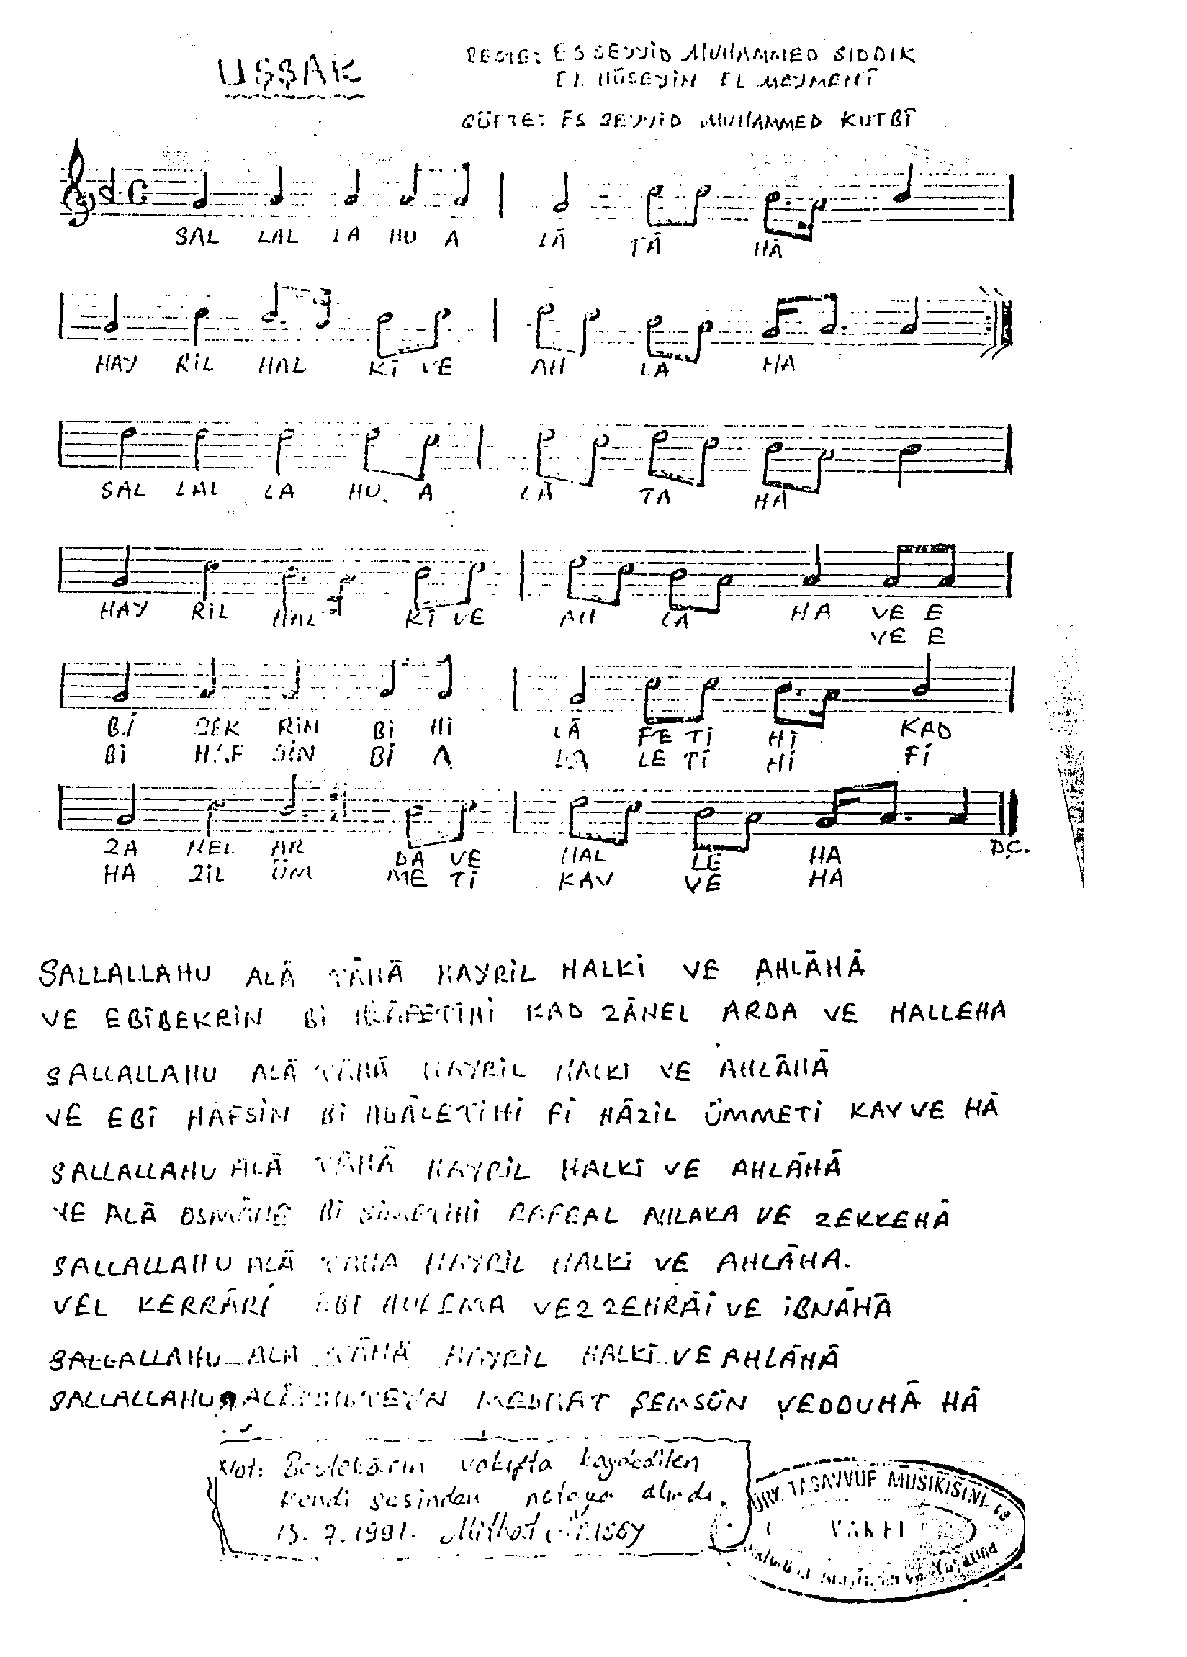 UŞŞAK
BESTE: ES SEYYİD MUHAMMED SIDDIK
EL HÜSEYİN EL MEYMENÎ
GÜFTE: ES SEYYİD MUHAMMED KUTBÎ
SAL LAL LA HU A LÂ TÂ HÂ
HAY RİL HAL Kİ VE AH LA HA
SAL LAL LA HU A LÂ TA HA
HAY RİL HAL Kİ VE AH LA HA VE E
VE E
Bİ BEK RİN Bİ Hİ LÂ FE Tİ Hİ KAD
Bİ HAF SİN Bİ A LA LE Tİ Hİ Fİ
ZA NEL AR DA VE HAL LE HA
HA ZİL ÜM ME Tİ KAV VE HA
D.C.
SALLALLAHU ALÂ TÂHÂ HAYRİL HALKİ VE AHLÂHÂ
VE EBÎBEKRİN Bİ HİLÂFETİHİ KAD ZÂNEL ARDA VE HALLEHA
SALLALLAHU ALÂ TÂHÂ HAYRİL HALKI VE AHLÂHÂ
VE EBÎ HAFSİN Bİ Fİ HÂZİL ÜMMETİ KAVVE HÂ
SALLALLAHU ALÂ TÂHÂ HAYRİL HALKİ VE AHLÂHÂ
VE ALÂ OSMÂNE Bİ RAFEAL VE ZEKKEHÂ
SALLALLAHU ALÂ TÂHA HAYRİL HALKİ VE AHLÂHA.
VEL KERRÂRİ EBİ VEZZEHRÂİ VE İBNÂHÂ
SALLALLAHU ALA TÂHÂ HAYRİL HALKİ VE AHLÂHÂ
SALLALLAHU ŞEMSÜN VEDDUHÂ HÂ
Not: Bestekârın vakıfta kaydedilen
kendi sesinden notaya alındı.
13.7.1991. Mithat
TASAVVUF MUSIKISINI
VAKFI